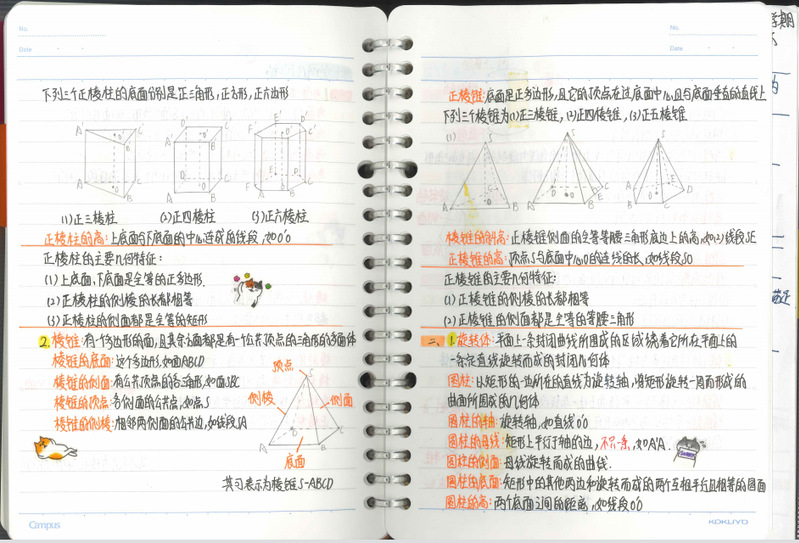 No.
Date
下列三个正棱柱的底面分别是正三角形,正方形,正六边形
A' C' B' O' A O C B
D' C' A' B' O' D O C A B
E' D' F' C' A' B' O' E D F O C A B
(1)正三棱柱 (2)正四棱柱 (3)正六棱柱
正棱柱的高:上底面与下底面的中心连成的线段,如O'O
正棱柱的主要几何特征:
(1)上底面,下底面是全等的正多边形
(2)正棱柱的侧棱的长都相等
(3)正棱柱的侧面都是全等的矩形
2.棱锥:有个多边形的面,且其余各面都是有一位共顶点的三角形的多面体
棱锥的底面:这个多边形,如面ABCD
棱锥的侧面:有公共顶点的各三角形,如面SBC
棱锥的顶点:各侧面的公共点,如点S
棱锥的侧棱:相邻两侧面的公共边,如线段SA
顶点
S
侧棱 侧面
A D B C
底面
其可表示为棱锥S-ABCD
Campus
No.
Date
正棱锥:底面是正多边形,且它的顶点在过底面中心且与底面垂直的直线上
下列三个棱锥为(1)正三棱锥,(2)正四棱锥,(3)正五棱锥
(1)
S S S
A B C O
A B C D O E
A B C D O
棱锥的斜高:正棱锥侧面的全等等腰三角形底边上的高,如(2)线段SE
正棱锥的高:顶点S与底面中心O的连线的长,如线段SO
正棱锥的主要几何特征:
(1)正棱锥的侧棱的长都相等
(2)正棱锥的侧面都是全等的等腰三角形
二、1.旋转体:平面上一条封闭曲线所围成的区域绕着它所在平面上的
一条定直线旋转而成的封闭几何体
圆柱:以矩形的一边所在的直线为旋转轴,将矩形旋转一周而形成的
曲面所围成的几何体
圆柱的轴:旋转轴,如直线O'O
圆柱的母线:矩形上平行于轴的边,不只一条,如A'A.
圆柱的侧面:母线旋转而成的曲线.
圆柱的底面:矩形中的其他两边和旋转而成的两个互相平行且相等的圆面
圆柱的高:两个底面之间的距离,如线段O'O
KOKUYO
学期